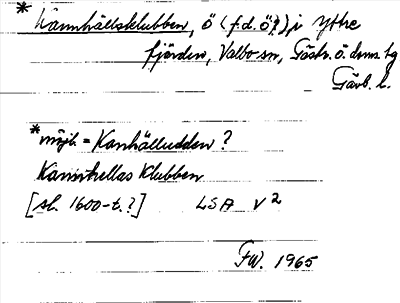 * Kannhällsklubben, ö (f.d. ö?), i Yttre
fjärden, Valbo sn, Gästr. ö. doms. hg
Gävl. l.
* möjl. = Kanhälludden?
Kannhellas Klubben
[sl. 1600-t.?] LSA V 2
FW. 1965